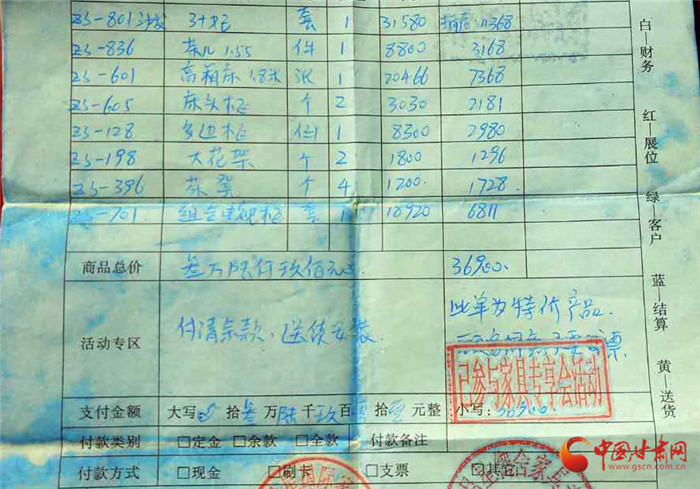 ZS-801沙发 3+1+2 套 1 31580 11368
ZS-836 茶几1.55 件 1 8800 3168
ZS-601 高箱床1.8米 张 1 20466 7368
ZS-605 床头柜 个 2 3030 2181
ZS-128 多边柜 件 1 8300 2980
ZS-198 大花架 个 2 1800 1296
ZS-396 茶凳 个 4 1200. 1728.
ZS-701 组合电视柜 套 1 18920 6811
商品总价 叁万陆仟玖佰元 36900.
活动专区 付清余款、送货安装 此单为特价产品
已参与家具专享会活动
支付金额 大写 拾叁万陆千玖百 拾 元整 小写: 36900.
付款类别 □定金 □余款 □全款 付款备注
付款方式 □现金 □刷卡 □支票 □其它
白—财务 红—展位 绿—客户 蓝—结算 黄—送货
中国甘肃网
www.gscn.com.cn